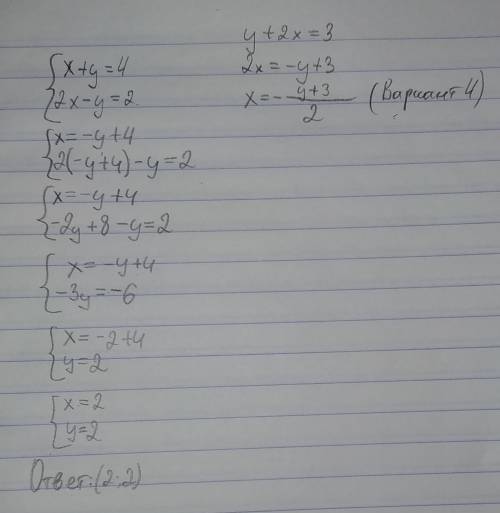 x+y=4
2x-y=2
x=-y+4
2(-y+4)-y=2
x=-y+4
-2y+8-y=2
x=-y+4
-3y=-6
x=-2+4
y=2
x=2
y=2
Ответ:(2;2)
y+2x=3
2x=-y+3
x=-\frac{y+3}{2} (Вариант 4)